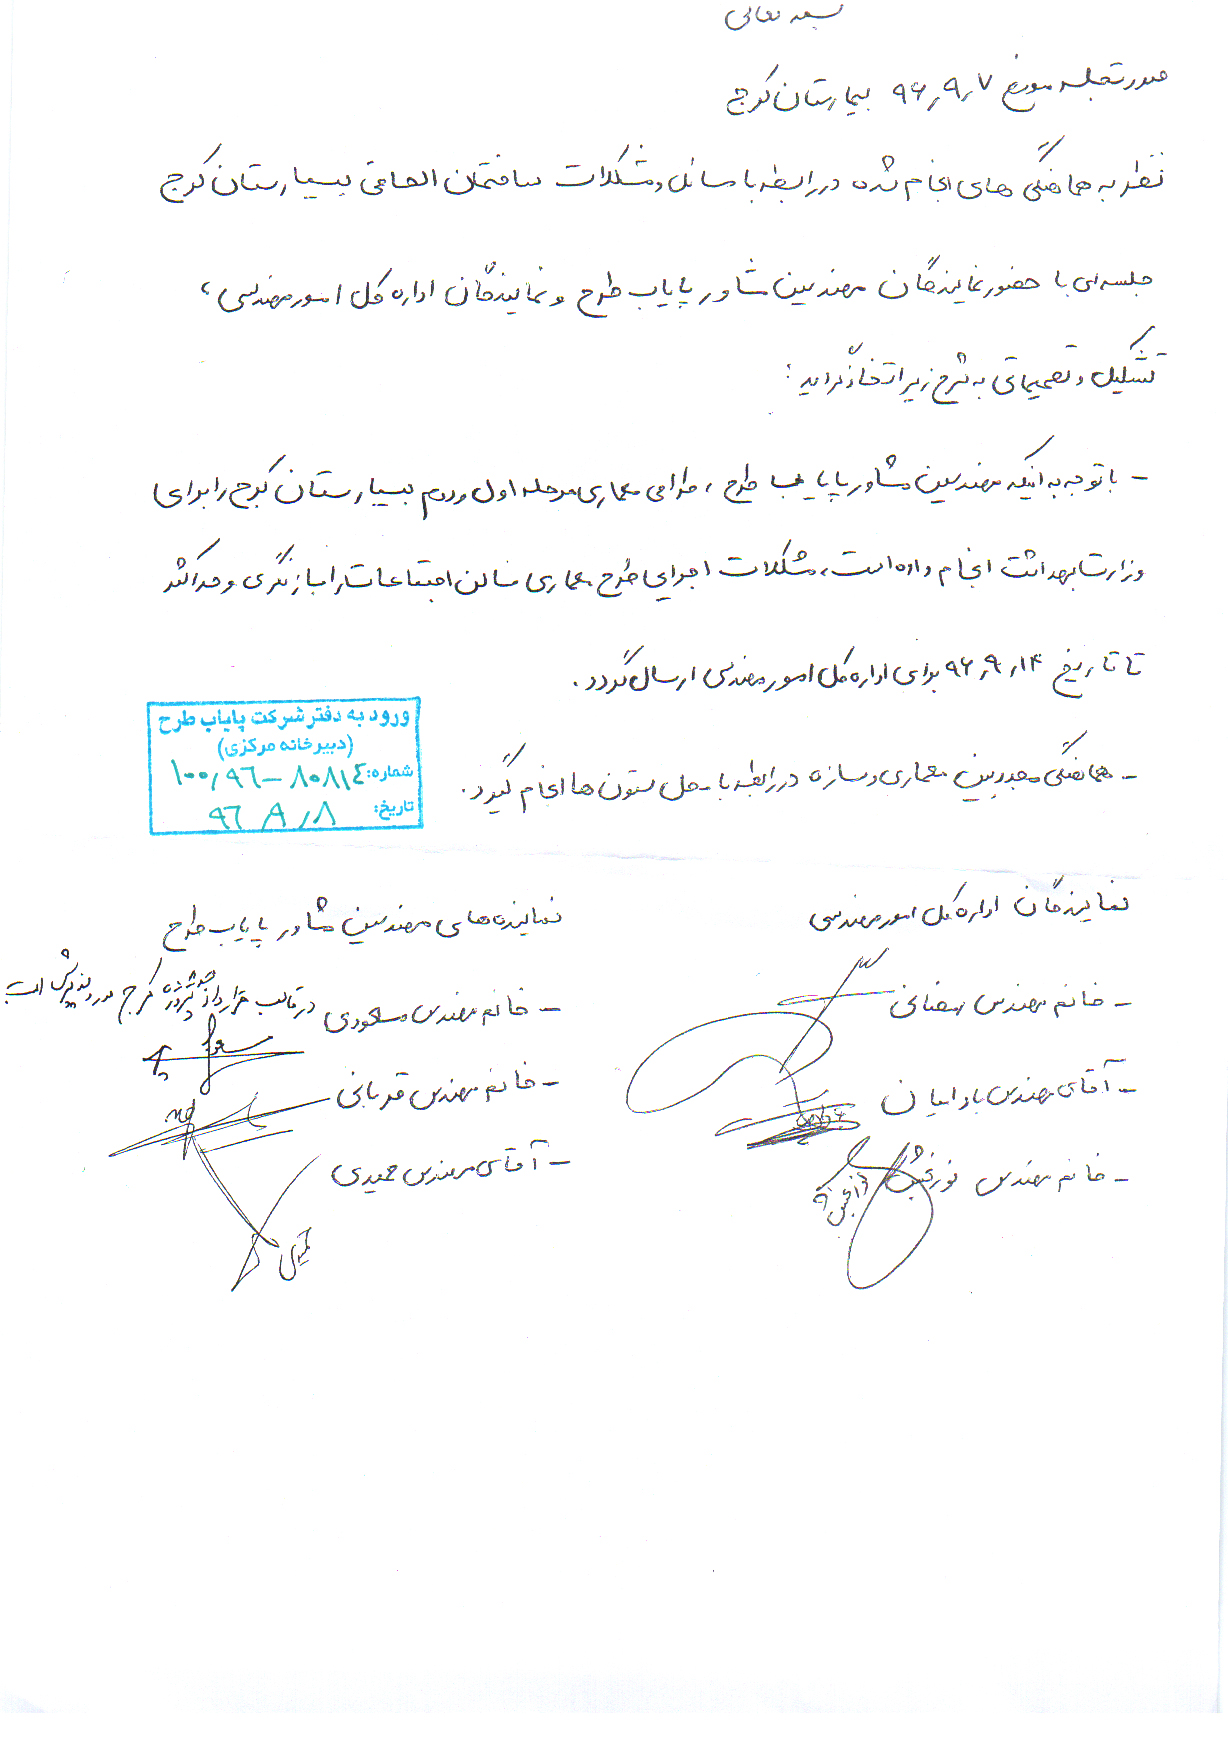 بسمه تعالی
صورتجلسه مورخ ۹۶٫۹٫۷ بیمارستان کرج
نظر به هماهنگی های انجام شده در رابطه با مسائل و مشکلات ساختمان الحاقی بیمارستان کرج
جلسه ای با حضور نمایندگان مهندسین مشاور پایاب طرح و نمایندگان اداره کل امور مهندسی ،
تشکیل و تصمیماتی به شرح زیر اتخاذ گردید :
- با توجه به اینکه مهندسین مشاور پایاب طرح ، طراحی معماری مرحله اول و دوم بیمارستان کرج را برای
وزارت بهداشت انجام داده است ، مشکلات اجرای طرح معماری سالن اجتماعات را بازنگری و حداکثر
تا تاریخ ۹۶٫۹٫۱۴ برای اداره کل امور مهندسی ارسال گردد .
- هماهنگی مجدد بین معماری و سازه در رابطه با محل ستون ها انجام گیرد .
ورود به دفتر شرکت پایاب طرح
(دبیرخانه مرکزی)
شماره: ۱۰۰٫۹۶-۸۰۸۱۴
تاریخ: ۹۶ ۸٫۸
نمایندگان اداره کل امور مهندسی
- خانم مهندس
- آقای مهندس
- خانم مهندس نوربخش
نماینده های مهندسین مشاور پایاب طرح
- خانم مهندس مسعودی در قالب قرارداد پروژه کرج مورد پذیرش است
- خانم مهندس قربانی
- آقای مهندس حمیدی